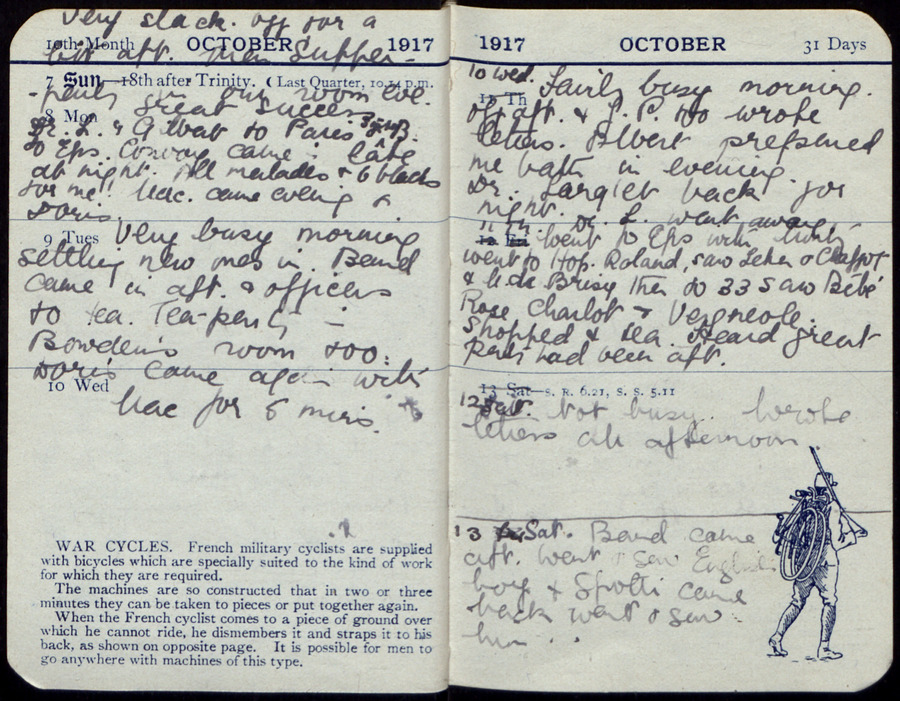 Very slack. off for a
10th Month OCTOBER 1917
bit aft. Men Supper-
7 Sun 18th after Trinity. (Last Quarter, 10.14 p.m.
-party in our room eve.
8 Mon great success
Dr. L. & Gilbert to Paris
to Eps. Convoy came in late
at night. All malades & 6 blacks
for me! Mac. came evening &
Doris.
9 Tues Very busy morning
settling new ones in. Baird
came in aft. & officers
to tea. Tea-party in
Bowden's room too.
Doris came again with
10 Wed
Mac for 5 mins.
WAR CYCLES. French military cyclists are supplied
with bicycles which are specially suited to the kind of work
for which they are required.
The machines are so constructed that in two or three
minutes they can be taken to pieces or put together again.
When the French cyclist comes to a piece of ground over
which he cannot ride, he dismembers it and straps it to his
back, as shown on opposite page. It is possible for men to
go anywhere with machines of this type.
1917 OCTOBER 31 Days
10 Wed. Fairly busy morning.
11 Th
off aft. & wrote
letters. Albert prepared
me bath in evening.
Dr. back for
night. Dr. L. went away
12 Fri Went to Eps with
went to Hop. Roland, saw &
& then to 33 saw Bébé
Rose Charlot &
Shopped & tea. Heard great
party had been aft.
13 Sat S. R. 6.21, S. S. 5.11
12 Not busy. Wrote
letters all afternoon.
13 Sat. Baird came
aft. Went & saw English
boy & came
back went & saw
him . .